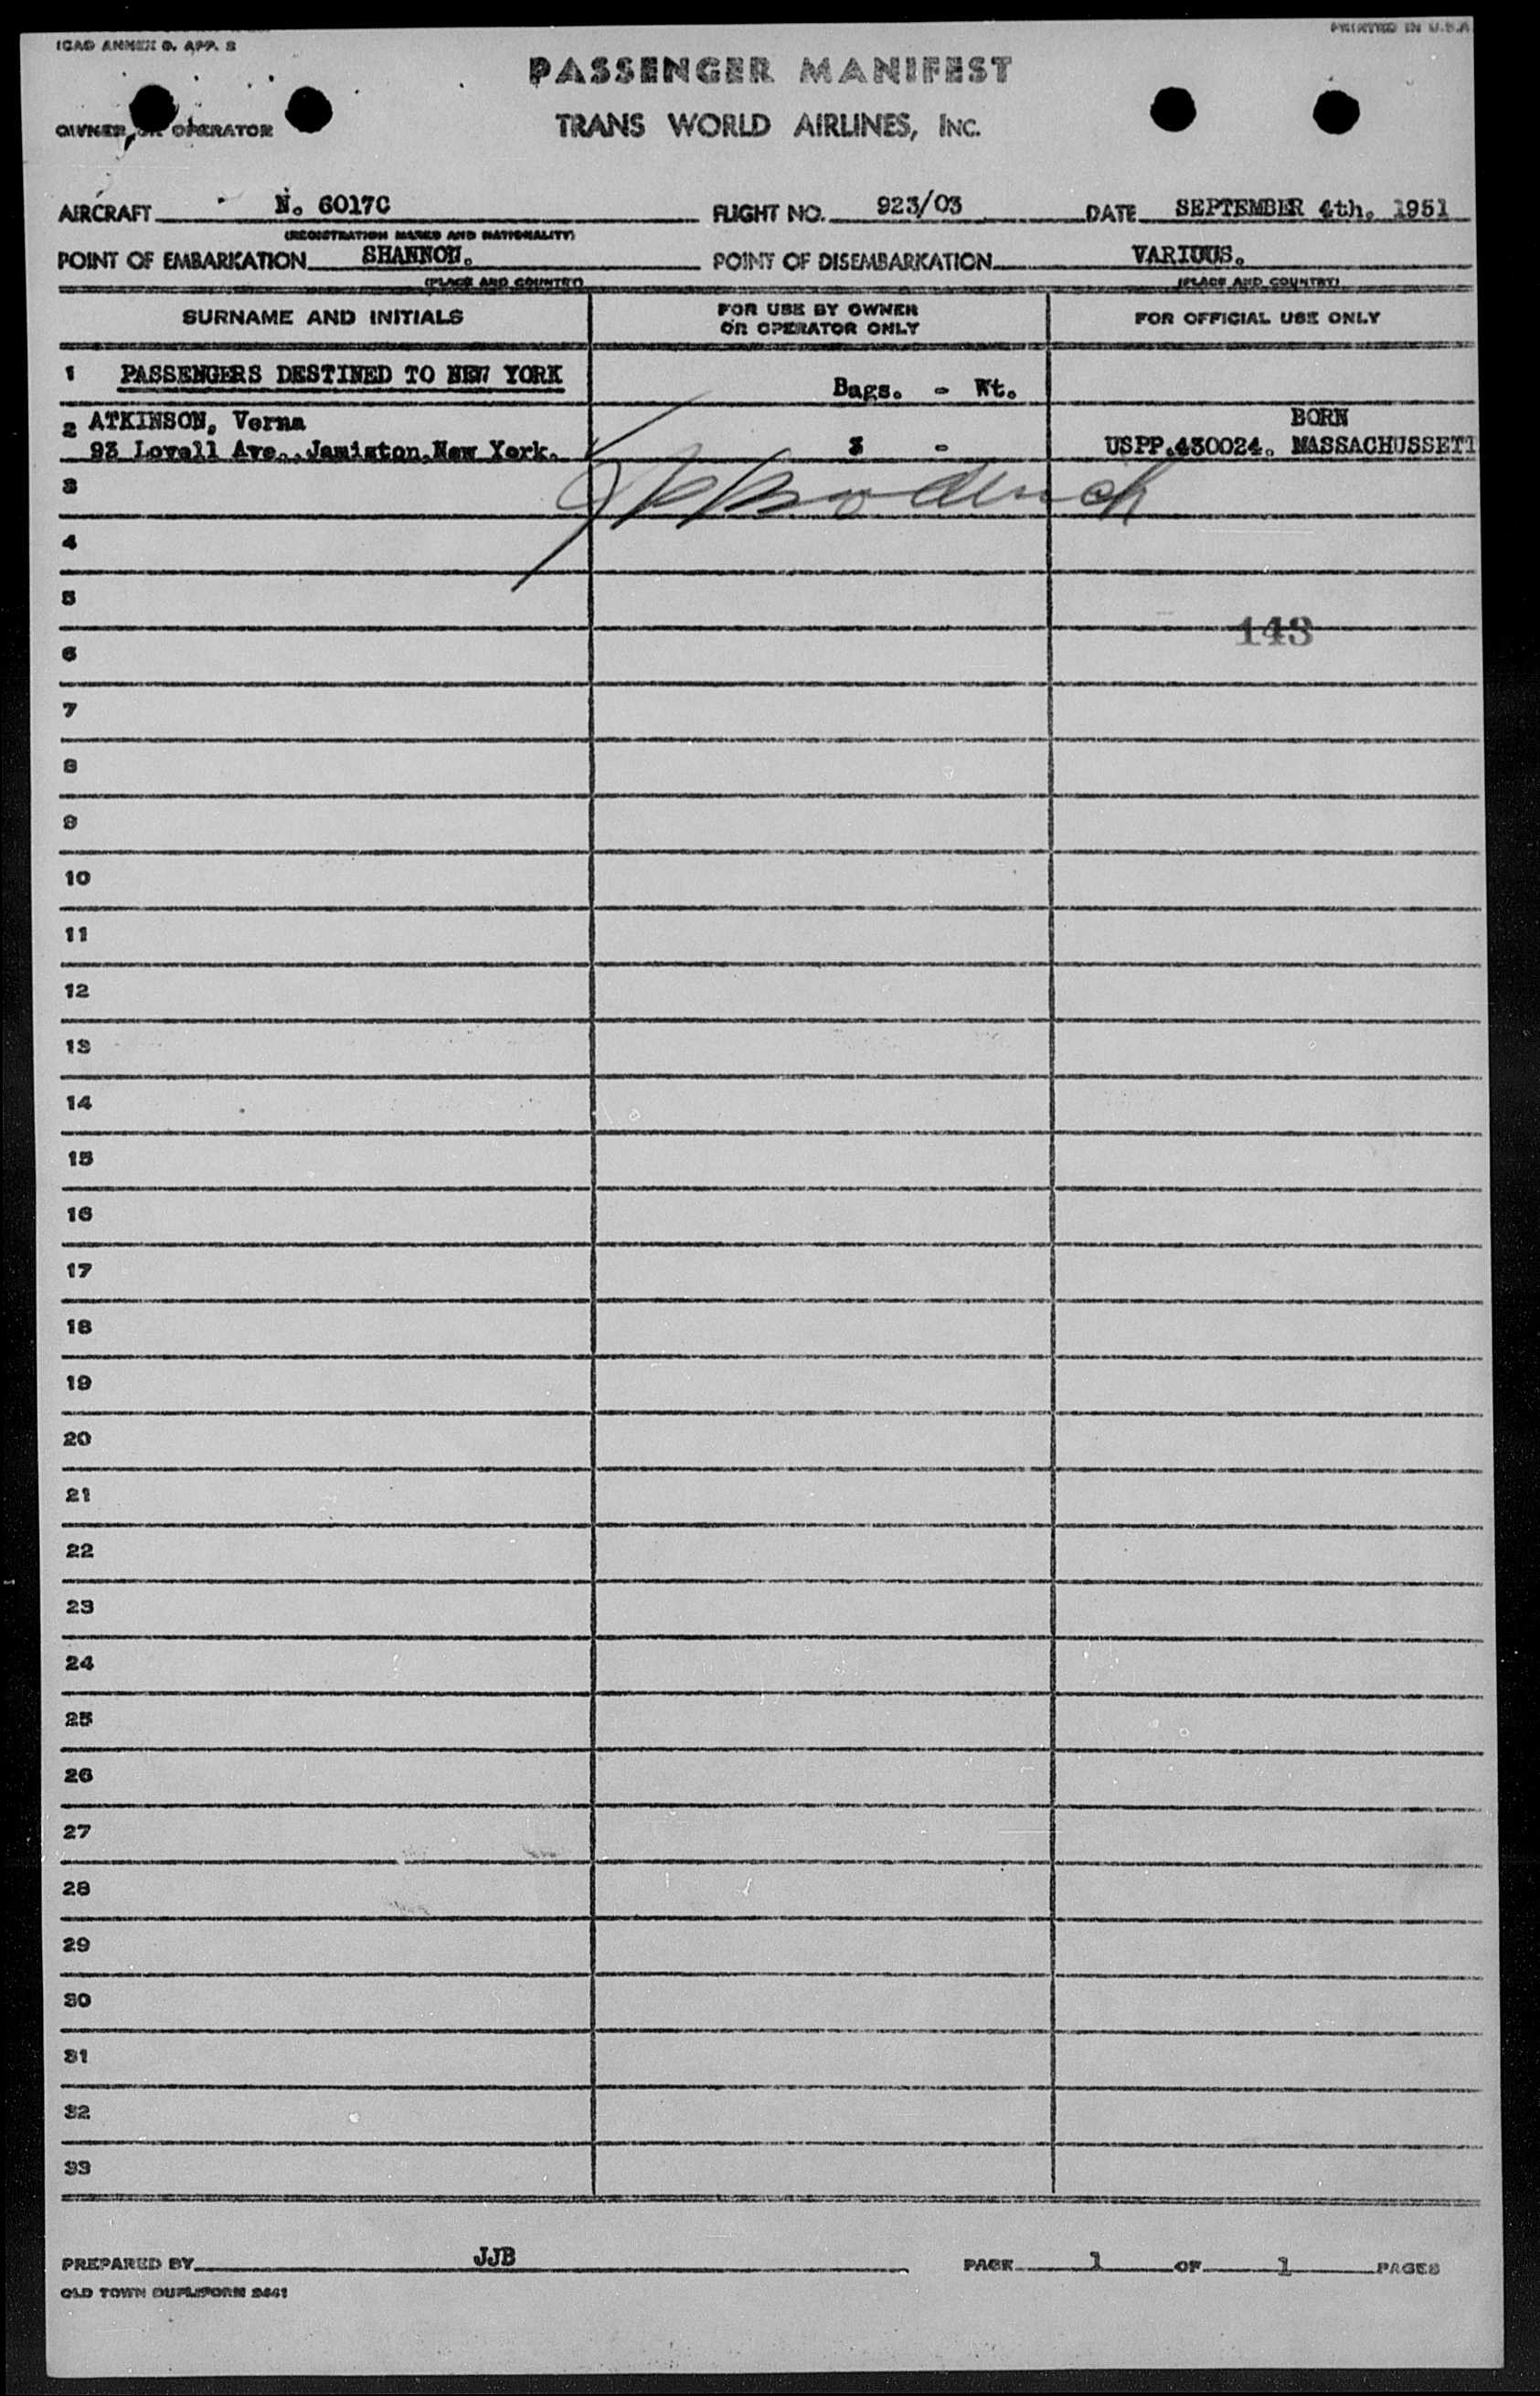 ICAO ANNEX 9. APP. 2
PRINTED IN U.S.A
PASSENGER MANIFEST
OWNER OR OPERATOR
TRANS WORLD AIRLINES, INC.
AIRCRAFT N. 6017C FLIGHT NO. 923/03 DATE SEPTEMBER 4th. 1951
(REGISTRATION MARKS AND NATIONALITY)
POINT OF EMBARKATION SHANNON. POINT OF DISEMBARKATION VARIOUS.
(PLACE AND COUNTRY) (PLACE AND COUNTRY)
SURNAME AND INITIALS
FOR USE BY OWNER
OR OPERATOR ONLY
FOR OFFICIAL USE ONLY
1 PASSENGERS DESTINED TO NEW YORK Bags. - Wt.
2 ATKINSON, Verna BORN
93 Lovell Ave., Jamiston, New York. 3 - USPP.430024. MASSACHUSSETT
3
4
5
143
6
7
8
9
10
11
12
13
14
15
16
17
18
19
20
21
22
23
24
25
26
27
28
29
30
31
32
33
PREPARED BY JJB PAGE 1 OF 1 PAGES
OLD TOWN DUPLIFORM 2441